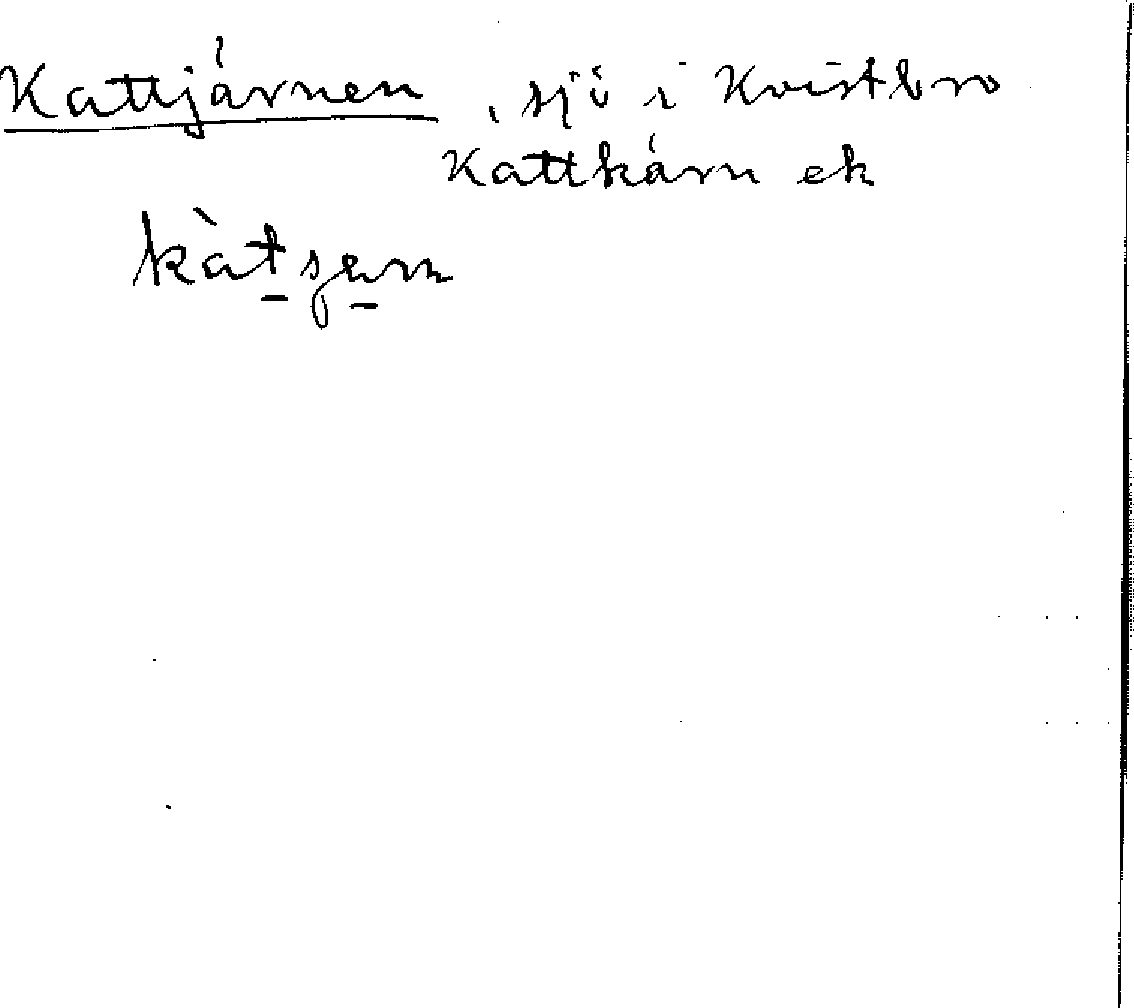 Kattjärnen, sjö i Kvistbro
Kattkärn ek